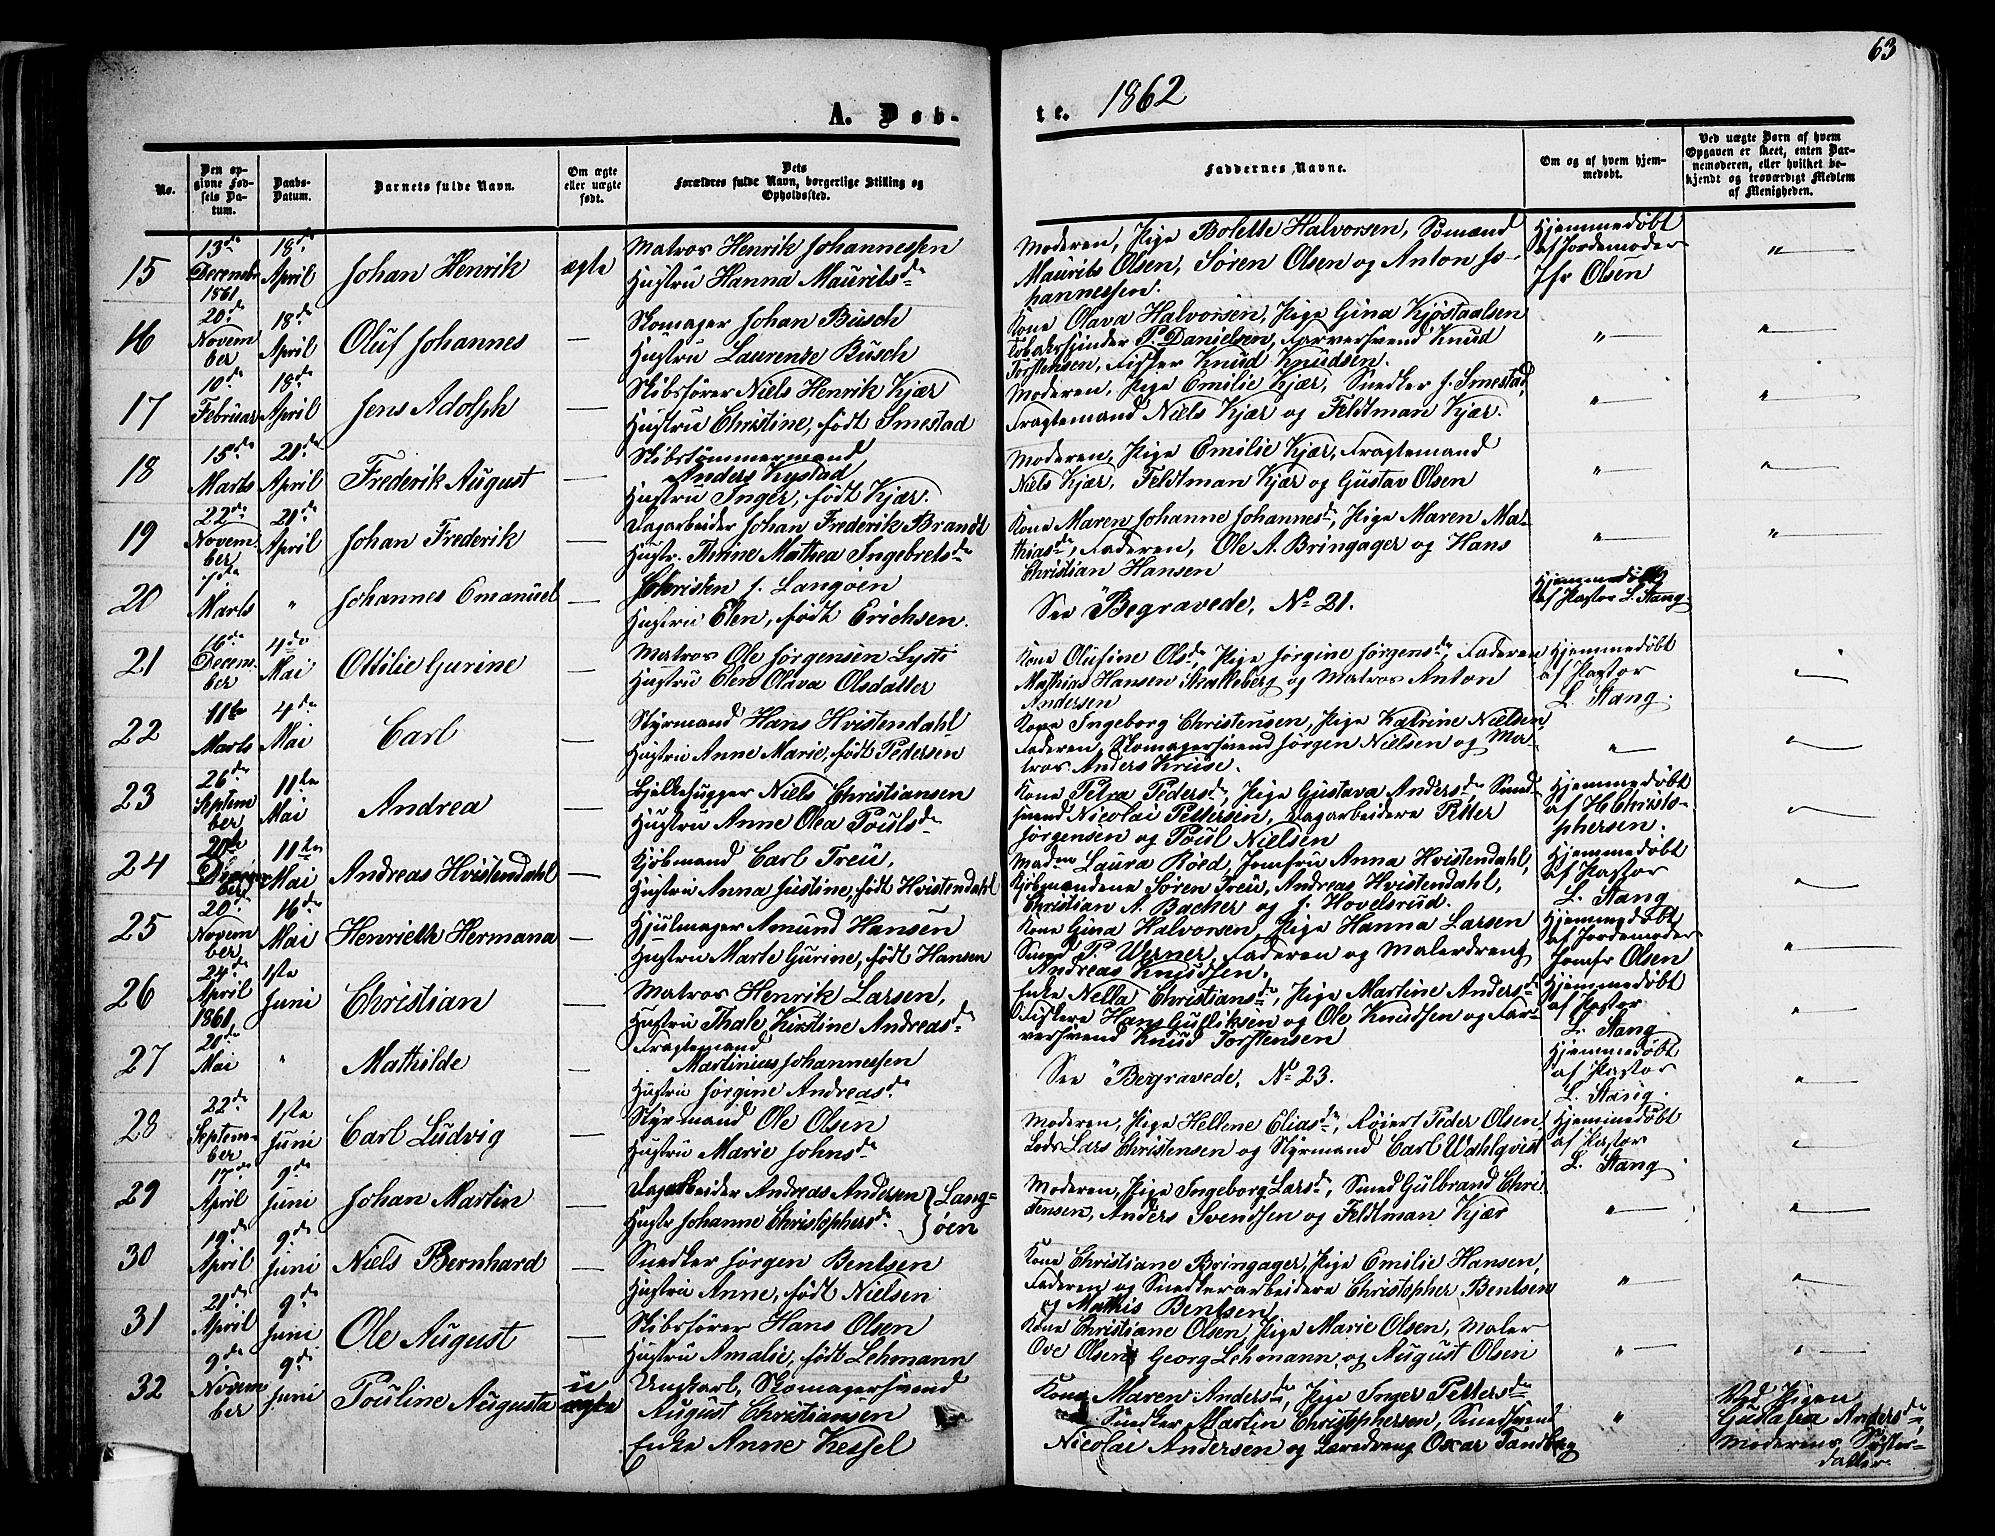 63
A. Døb-
te. 1862
No.
Den op-
givne Fød-
sels Da-
tum.
Daabs-
Datum.
Barnets fulde Navn.
Om ægte
eller uægte
født.
Dets
Forældres fulde Navn, borgerlige Stilling og
Opholdssted.
Faddernes Navne.
Om og af hvem hjem-
medøbt.
Ved uægte Børn af hvem
Opgaven er skeet, enten Bar-
nemoderen, eller hvilket be-
kjendt og troværdigt Medlem
af Menigheden.
15
13de
December
1861
18de
April
Johan Henrik
ægte
Matros Henrik Johannessen
Hustru Hanna Mauritsd.
Moderen, Pige Bolette Halvorsen, Sømænd
Maurits Olsen, Sören Olsen og Anton Jo-
hannessen.
Hjemmedøbt
af Jordemoder
Jfr Olsen
16
20de
Novem
ber
18de
April
Oluf Johannes
Skomager Johan Busch
Hustru Laurense Busch
Kone Olava Halvorsen, Pige Gina Kjøstaalsen
P. Danielsen, Farversvend Knud
Torstensen, Fisker Knud Knudsen.
17
10de
Februar
18de
April
Jens Adolph
Skibsfører Niels Henrik Kjær
Hustru Christine, født Smestad
Moderen, Pige Emilie Kjær, Snedker J. Smestad,
Fragtemand Niels Kjær og Feldtman Kjær.
18
15de
Marts
21de
April
Frederik August
Skibstømmermand
Anders Kystad
Hustru Inger, født Kjær.
Moderen, Pige Emilie Kjær, Fragtemand
Niels Kjær, Feldtman Kjær og Gustav Olsen
19
22de
Novem-
ber
21de
April
Johan Frederik
Dagarbeider Johan Frederik Brandt
Hustr. Thine Mathea Ingebretsd.
Kone Maren Johanne Johannesd., Pige Maren Ma-
thiasd., Faderen, Ole A. Bringager og Hans
Christian Hansen
20
7de
Marts
Johannes Emanuel
Christen J. Langøen
Hustru Elen, født Erichsen.
See "Begravede, No 21.
Hjemmedøbt
af Pastor L. Stang.
21
16de
Decem-
ber
4de
Mai
Ottilie Gurine
Matros Ole Jørgensen Lysti
Hustru Elen Olava Olsdatter
Kone Olufine Olsd., Pige Jørgine Jørgensd., Faderen
Mathias Hansen Skalleberg og Matros Anton
Andersen
Hjemmedøbt
af Pastor
L. Stang.
22
11te
Marts
4de
Mai
Carl
Styrmand Hans Hvistendahl
Hustru Anne Marie, født Pedersen
Kone Ingeborg Christensen, Pige Katrine Nielsen,
Faderen, Skomagersvend Jørgen Nielsen og Ma-
tros Anders Kruse.
23
26de
Septem
ber
11te
Mai
Andrea
Bjelkehugger Niels Christiansen
Hustru Anne Olea Poulsd.
Kone Petra Pedersd., Pige Gustava Andersd., Smed-
svend Nicolai Pettersen, Dagarbeidere Petter
Jørgensen og Poul Nielsen
Hjemmedøbt
af H Christo-
phersen.
24
20de
ber
11te
Mai
Andreas Hvistendahl
Kjøbmand Carl Treu,
Hustru Anna Justine, født Hvistendahl
Madme Laura Röed, Jomfru Anna Hvistendahl,
Kjøbmændene Sören Treu, Andreas Hvistendahl,
Christian A. Bacher og J. Hovelsrud.
Hjemmedøbt
af Pastor
L. Stang
25
20de
Novem
ber
16de
Mai
Henriette Hermana
Hjulmager Amund Hansen
Hustru Marte Gurine, født Hansen
Kone Gina Halvorsen, Pige Hanna Larsen
Smed P. Werner, Faderen og Malerdreng
Andreas Knudsen.
Hjemmedøbt
af Jordemoder
Jomfr Olsen
26
24de
April
1861
1ste
Juni
Christian
Matros Henrik Larsen,
Hustru Thale Kirstine Andreasd.
Enke Nella Christiansd., Pige Martine Andersd.
Fiskere Hans Gulliksen og Ole Knudsen og Far-
versvend Knud Torstensen
Hjemmedøbt
af Pastor
L. Stang
27
21de
Mai
Mathilde
Fragtemand
Martinius Johannessen
Hustru Jørgine Andreasd.
See "Begravede, No 23.
Hjemmedøbt
af Pastor
L. Stang.
28
22de
Septem-
ber
1ste
Juni
Carl Ludvig
Styrmand Ole Olsen
Hustru Marie Johnsd.
Moderen, Pige Hellene Eliasd., Røiert Peder Olsen,
Lods Lars Christensen og Styrmand Carl Wahlqvist
Hjemmedøbt
af Pastor
L. Stang
29
17de
April
9de
Juni
Johan Martin
Dagarbeider Andreas Andersen
Hustr Johanne Christophersd.
Lang-
öen
Moderen, Pige Ingeborg Larsd., Smed Gulbrand Chri-
stensen, Anders Svendsen og Feldtman Kjær
30
19de
April
9de
Juni
Niels Bernhard
Snedker Jørgen Bentsen
Hustru Anne, født Nielsen
Kone Christiane Bringager, Pige Emilie Hansen,
Faderen og Snedkerarbeidere Christopher Bentsen
og Mathis Bentsen
31
21de
April
9de
Juni
Ole August
Skibsfører Hans Olsen
Hustru Amalie, født Lehmann
Kone Christiane Olsen, Pige Marie Olsen, Maler
Ove Olsen, Georg Lehmann og August Olsen
32
9de
Novem
ber
9de
Juni
Pouline Augusta
u
ægte
Ungkarl, Skomagersvend
August Christiansen
Enke Anne Kessel
Kone Maren Andersd., Pige Inger Pettersd.
Snedker Martin Christophersen, Smedsvend
Nicolai Andersen og Læredreng Oscar Tandberg
Ved Pigen
Gustava Andersd.,
Moderens Søster-
datter